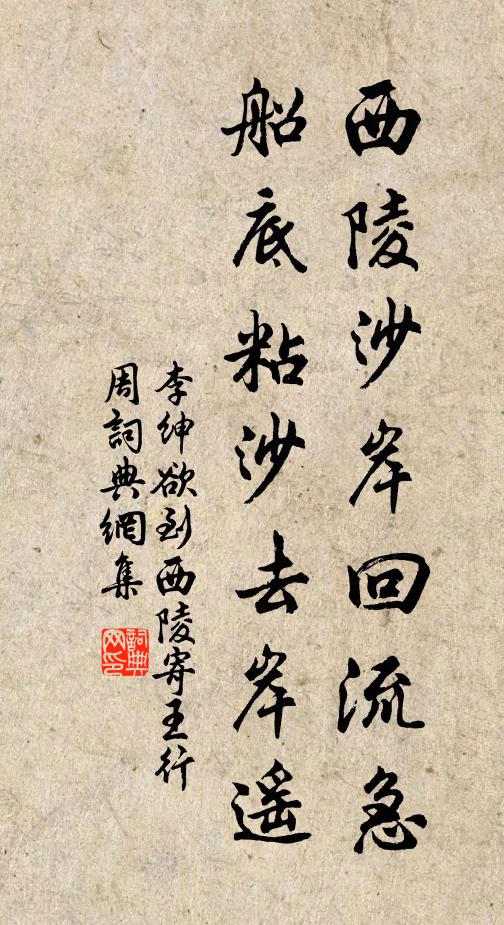 西陵沙岸回流急
船底粘沙去岸遥
李绅欲到西陵寄王行
周詞典網集
詞典网印